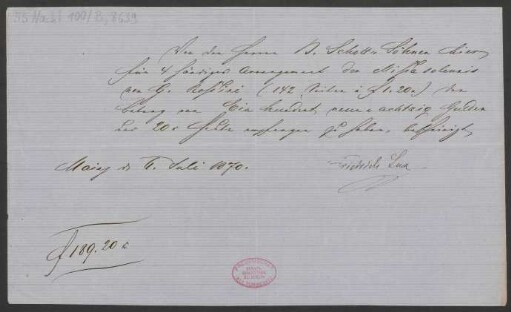 Von den Herren B. Schott's Söhnen hier
für 4 händiges Arrangement der Messe solennis
von G. Rossini (142 Seiten à f 1.20.) den
Betrag von Ein hundert, neun & achtzig Gulden
und 20 c Gulden empfangen zu haben, bescheinigt,
Mainz d. Juli 1870.
Friedrich Lux
f 189. 20 c